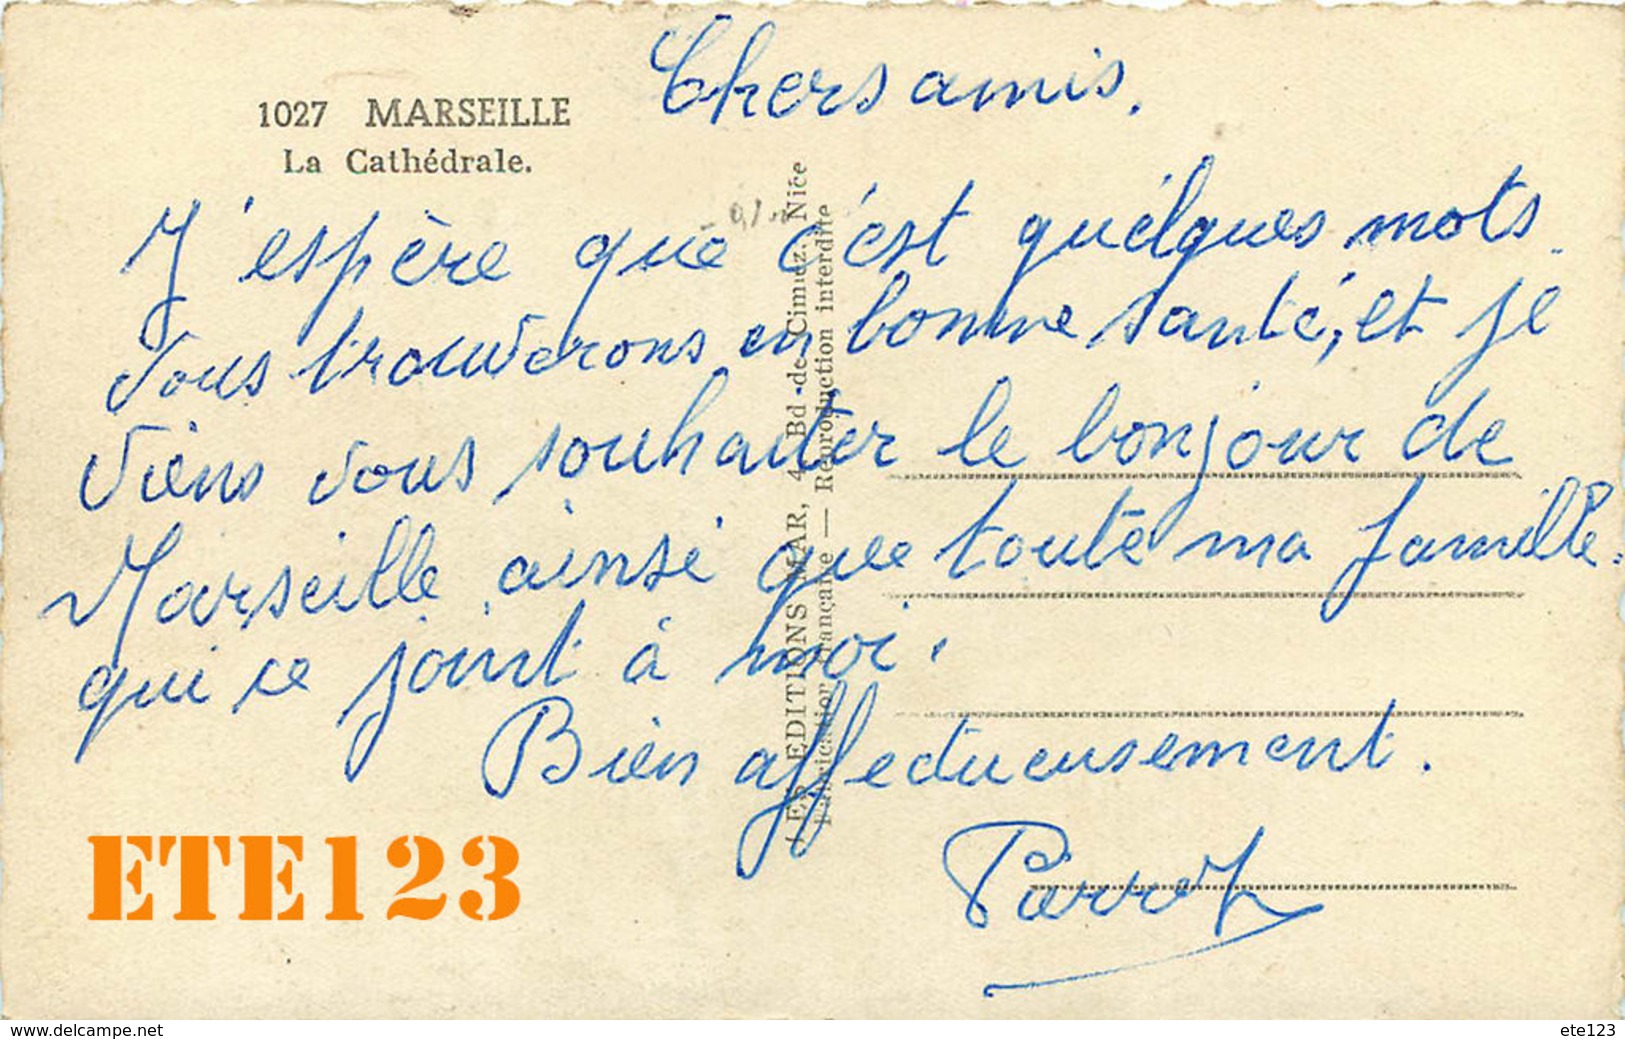 1027 MARSEILLE
La Cathédrale.
Chers amis.
J'espère que c'est quelques mots
vous trouverons en bonne santé, et je
viens vous souhaiter le bonjour de
Marseille ainsi que toute ma famille.
qui ce joint à moi.
Bien affectueusement.
LES EDITIONS MAR, 4, Bd de Cimiez. Nice
Fabrication française — Reproduction interdite
ETE123
www.delcampe.net
ete123